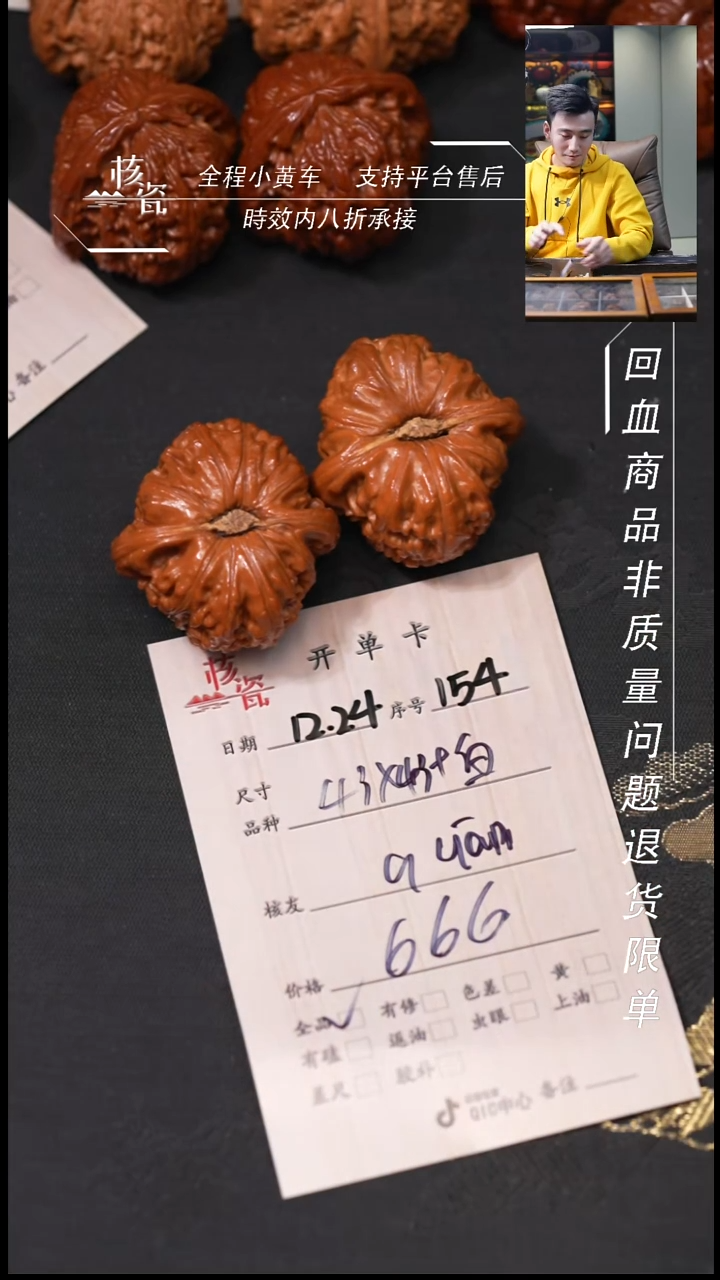 核瓷
全程小黄车 支持平台售后
時效内八折承接
回血商品非质量问题退货限单
备注
核瓷
开单卡
日期 12.24 序号 154
尺寸
品种
核友
价格 666
全品 有修 色差 黄
有硅 返油 虫眼 上油
差尺 胶补
QIC中心 备注